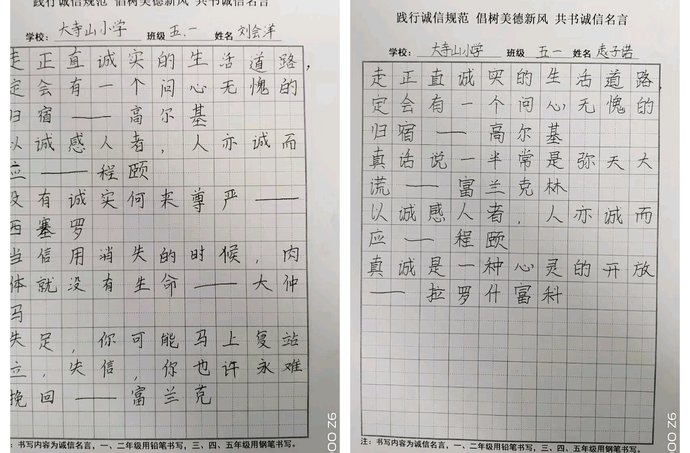 践行诚信规范 倡树美德新风 共书诚信名言
学校: 大寺山小学 班级 五.一 姓名 刘会洋
走正直诚实的生活道路,
定会有一个问心无愧的
归宿——高尔基
以诚感人者,人亦诚而
应——程颐
没有诚实何来尊严——
西塞罗
当信用消失的时候,肉
体就没有生命——大仲
马
失足,你可能马上复站
立,失信,你也许永难
挽回——富兰克
注:书写内容为诚信名言,一、二年级用铅笔书写,三、四、五年级用钢笔书写。
践行诚信规范 倡树美德新风 共书诚信名言
学校: 大寺山小学 班级 五.一 姓名 子诺
走正直诚实的生活道路
定会有一个问心无愧的
归宿——高尔基
真话说一半常是弥天大
谎——富兰克林
以诚感人者,人亦诚而
应——程颐
真诚是一种心灵的开放
——拉罗什富科
注:书写内容为诚信名言,一、二年级用铅笔书写,三、四、五年级用钢笔书写。